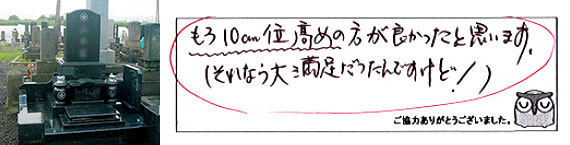 もう10cm位高めの方が良かったと思います。
(それなら大満足だったんですけど!)
ご協力ありがとうございました。